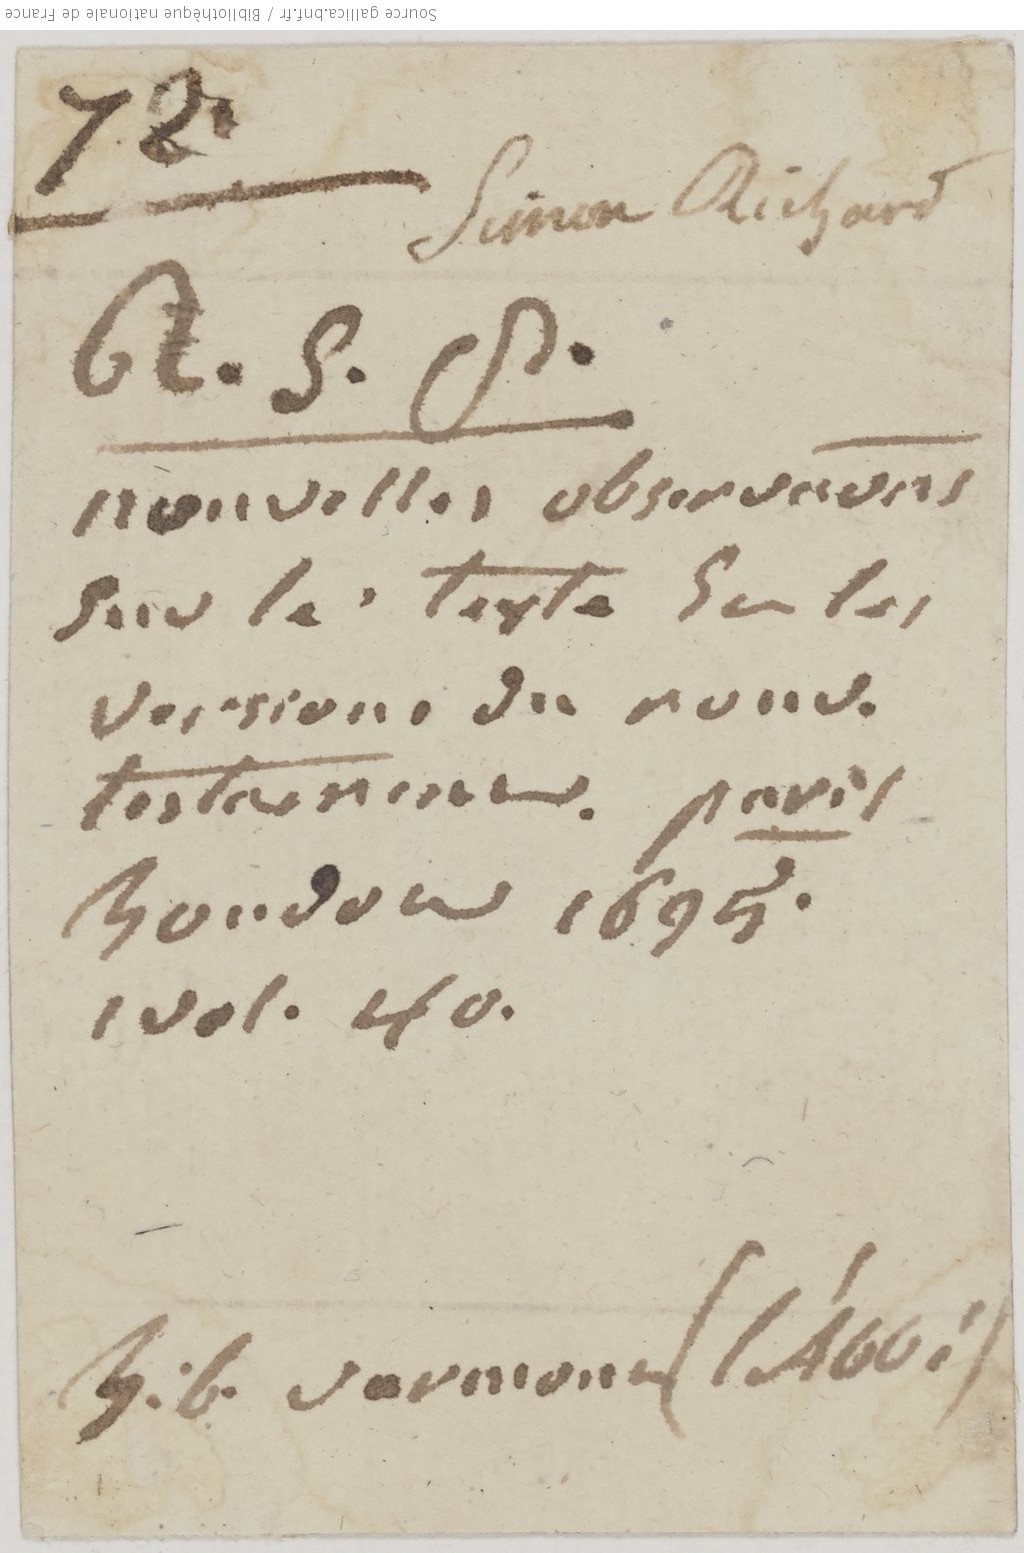 Source gallica.bnf.fr / Bibliothèque nationale de France
72.
Simon Richard
R. S. P.
nouvelles observaons
sur le texte & les
versions du nouv.
testament. paris
Boudot 1695.
1 vol. 4o.
Bib. vermont (l'Abbé)